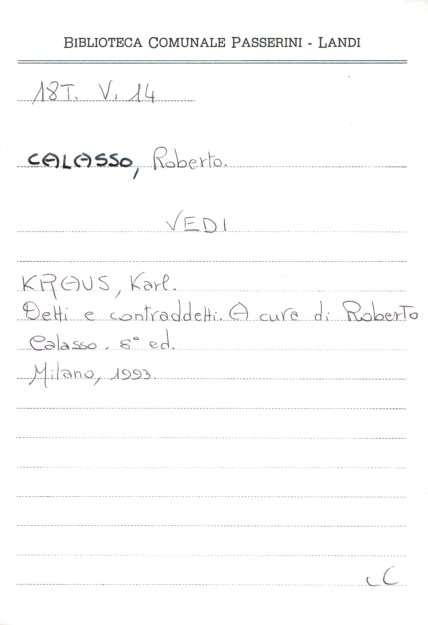 BIBLIOTECA COMUNALE PASSERINI - LANDI
18T. V. 14
CALASSO, Roberto.
VEDI
KRAUS, Karl.
Detti e contraddetti. A cura di Roberto
Calasso. 6° ed.
Milano, 1993.
cC